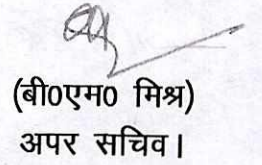 (बी0एम0 मिश्र)
अपर सचिव।